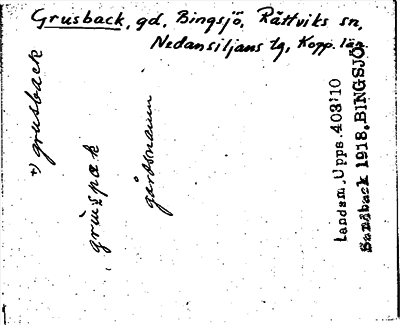 Grusback, gd, Bingsjö, Rättviks sn,
Nedansiljans tg, Kopp. län.
+) grusback
grùs̱pæk
gårdsnamn
Landsm. Upps. 403:10
Sandback 1918. BINGSJÖ